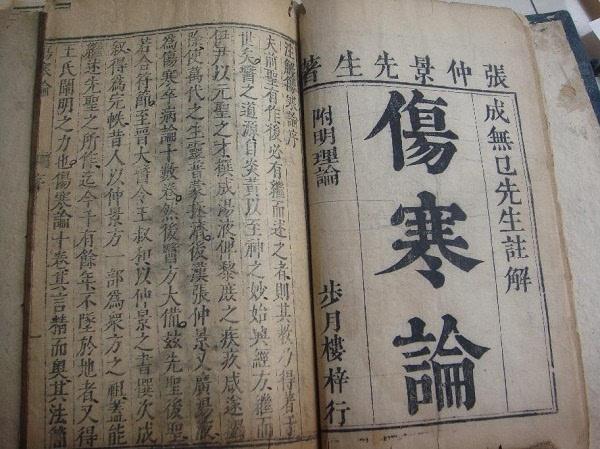 張仲景先生著
成無已先生註解
傷寒論
附明理論
步月樓梓行
注解傷寒論序
夫前聖有作後必有繼而述之者則其教乃得著于
世矣醫之道源自炎黃以至神之妙始興經方繼而
伊尹以元聖之才撰成湯液俾黎庶之疾疚咸遂蠲
除使萬代之生靈普蒙拯濟後漢張仲景又廣湯液
為傷寒卒病論十數卷然後醫方大備茲先聖後聖
若合符節至晉太醫令王叔和以仲景之書撰次成
敘得為完帙昔人以仲景方一部為眾方之祖蓋能
繼述先聖之所作迄今千有餘年不墜於地者又得
王氏闡明之力也傷寒論十卷其言精而奧其法簡